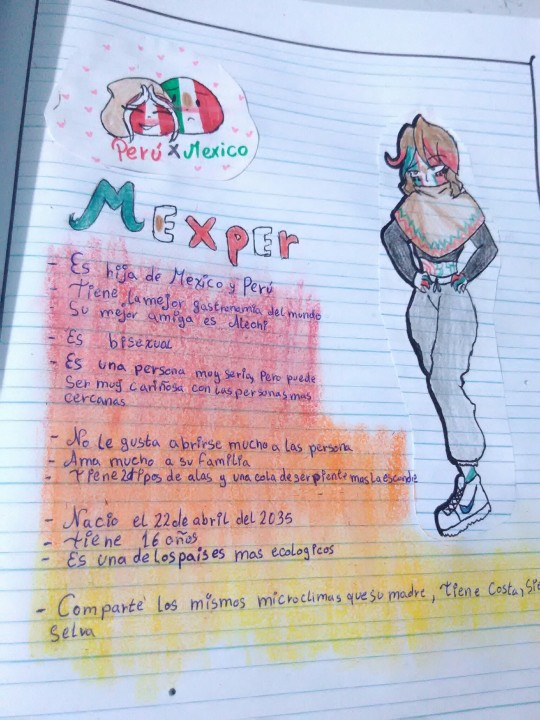 Perú X Mexico
MExpEr
- Es hija de Mexico y Perú
- Tiene la mejor gastronomía del mundo
Su mejor amiga es Mechi
- Es bisexual
- Es una persona muy seria, Pero puede
Ser muy cariñosa con las personas mas
cercanas
- No le gusta abrirse mucho a las persona
- Ama mucho a su familia
- Tiene 2 tipos de alas y una cola de serpiente mas la esconde
- Nacio el 22 de abril del 2035
- tiene 16 años
- Es una de los paises mas ecologicos
- Comparte los mismos microclimas que su madre, tiene Costa, Sie
Selva